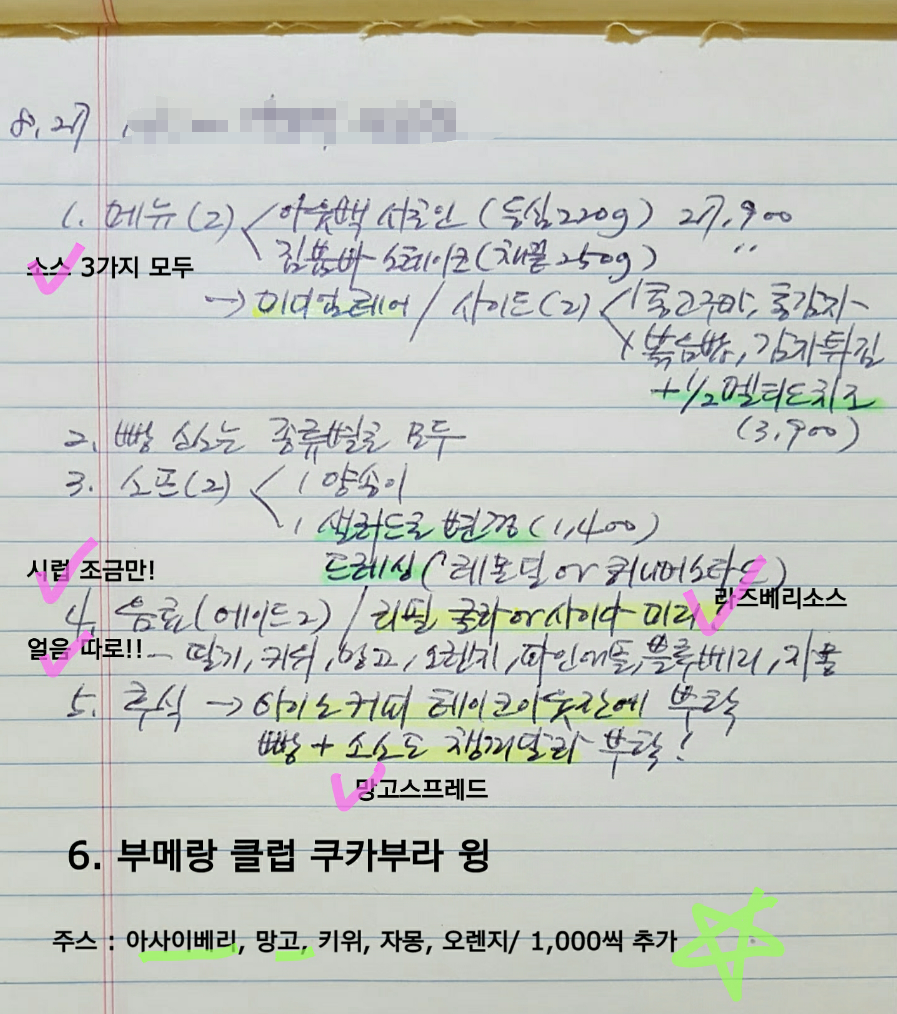 8. 27
1. 메뉴(2) 아웃백 서로인 (등심 220g) 27,900
짐붐바 스테이크(채끝 250g) "
소스 3가지 모두
→ 미디엄레어 / 사이드(2) 1 통고구마, 통감자
1 볶음밥, 감자튀김
+ 1/2 멜티드치즈
(3,900)
2. 빵 소스는 종류별로 모두
3. 스프(2) 1 양송이
1 샐러드로 변경 (1,400)
드레싱 (레몬딜 or 허니머스타드)
시럽 조금만!
라즈베리소스
4. 음료(에이드2) / 리필 콜라 or 사이다 미리
얼음 따로!!
- 딸기, 키위, 망고, 오렌지, 파인애플, 블루베리, 자몽
5. 후식 → 아이스커피 테이크아웃잔에 부탁
빵 + 소스도 챙겨달라 부탁!
망고스프레드
6. 부메랑 클럽 쿠카부라 윙
주스 : 아사이베리, 망고, 키위, 자몽, 오렌지/ 1,000씩 추가